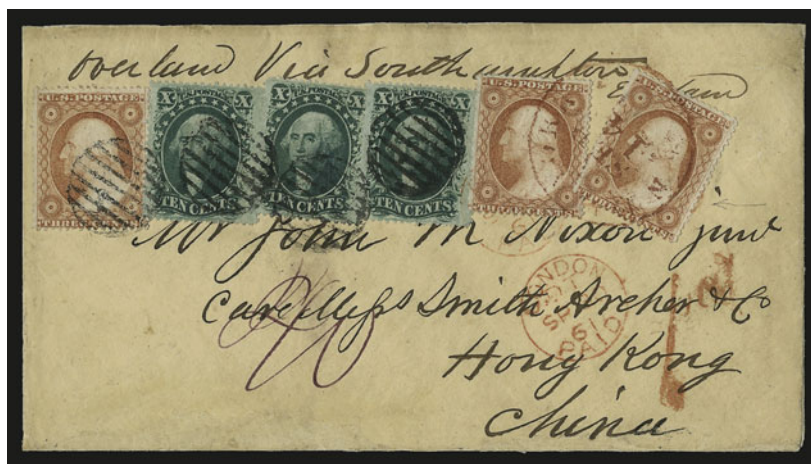 Overland Via Southampton
England
U.S. POSTAGE
THREE CENTS
X U.S. POSTAGE X
TEN CENTS
X U.S. POSTAGE X
TEN CENTS
X U.S. POSTAGE X
TEN CENTS
U.S. POSTAGE
U.S. POSTAGE
Mr John M Nixon junr
Care Messrs Smith Archer & Co
Hong Kong
China
LONDON
SP
61
PAID